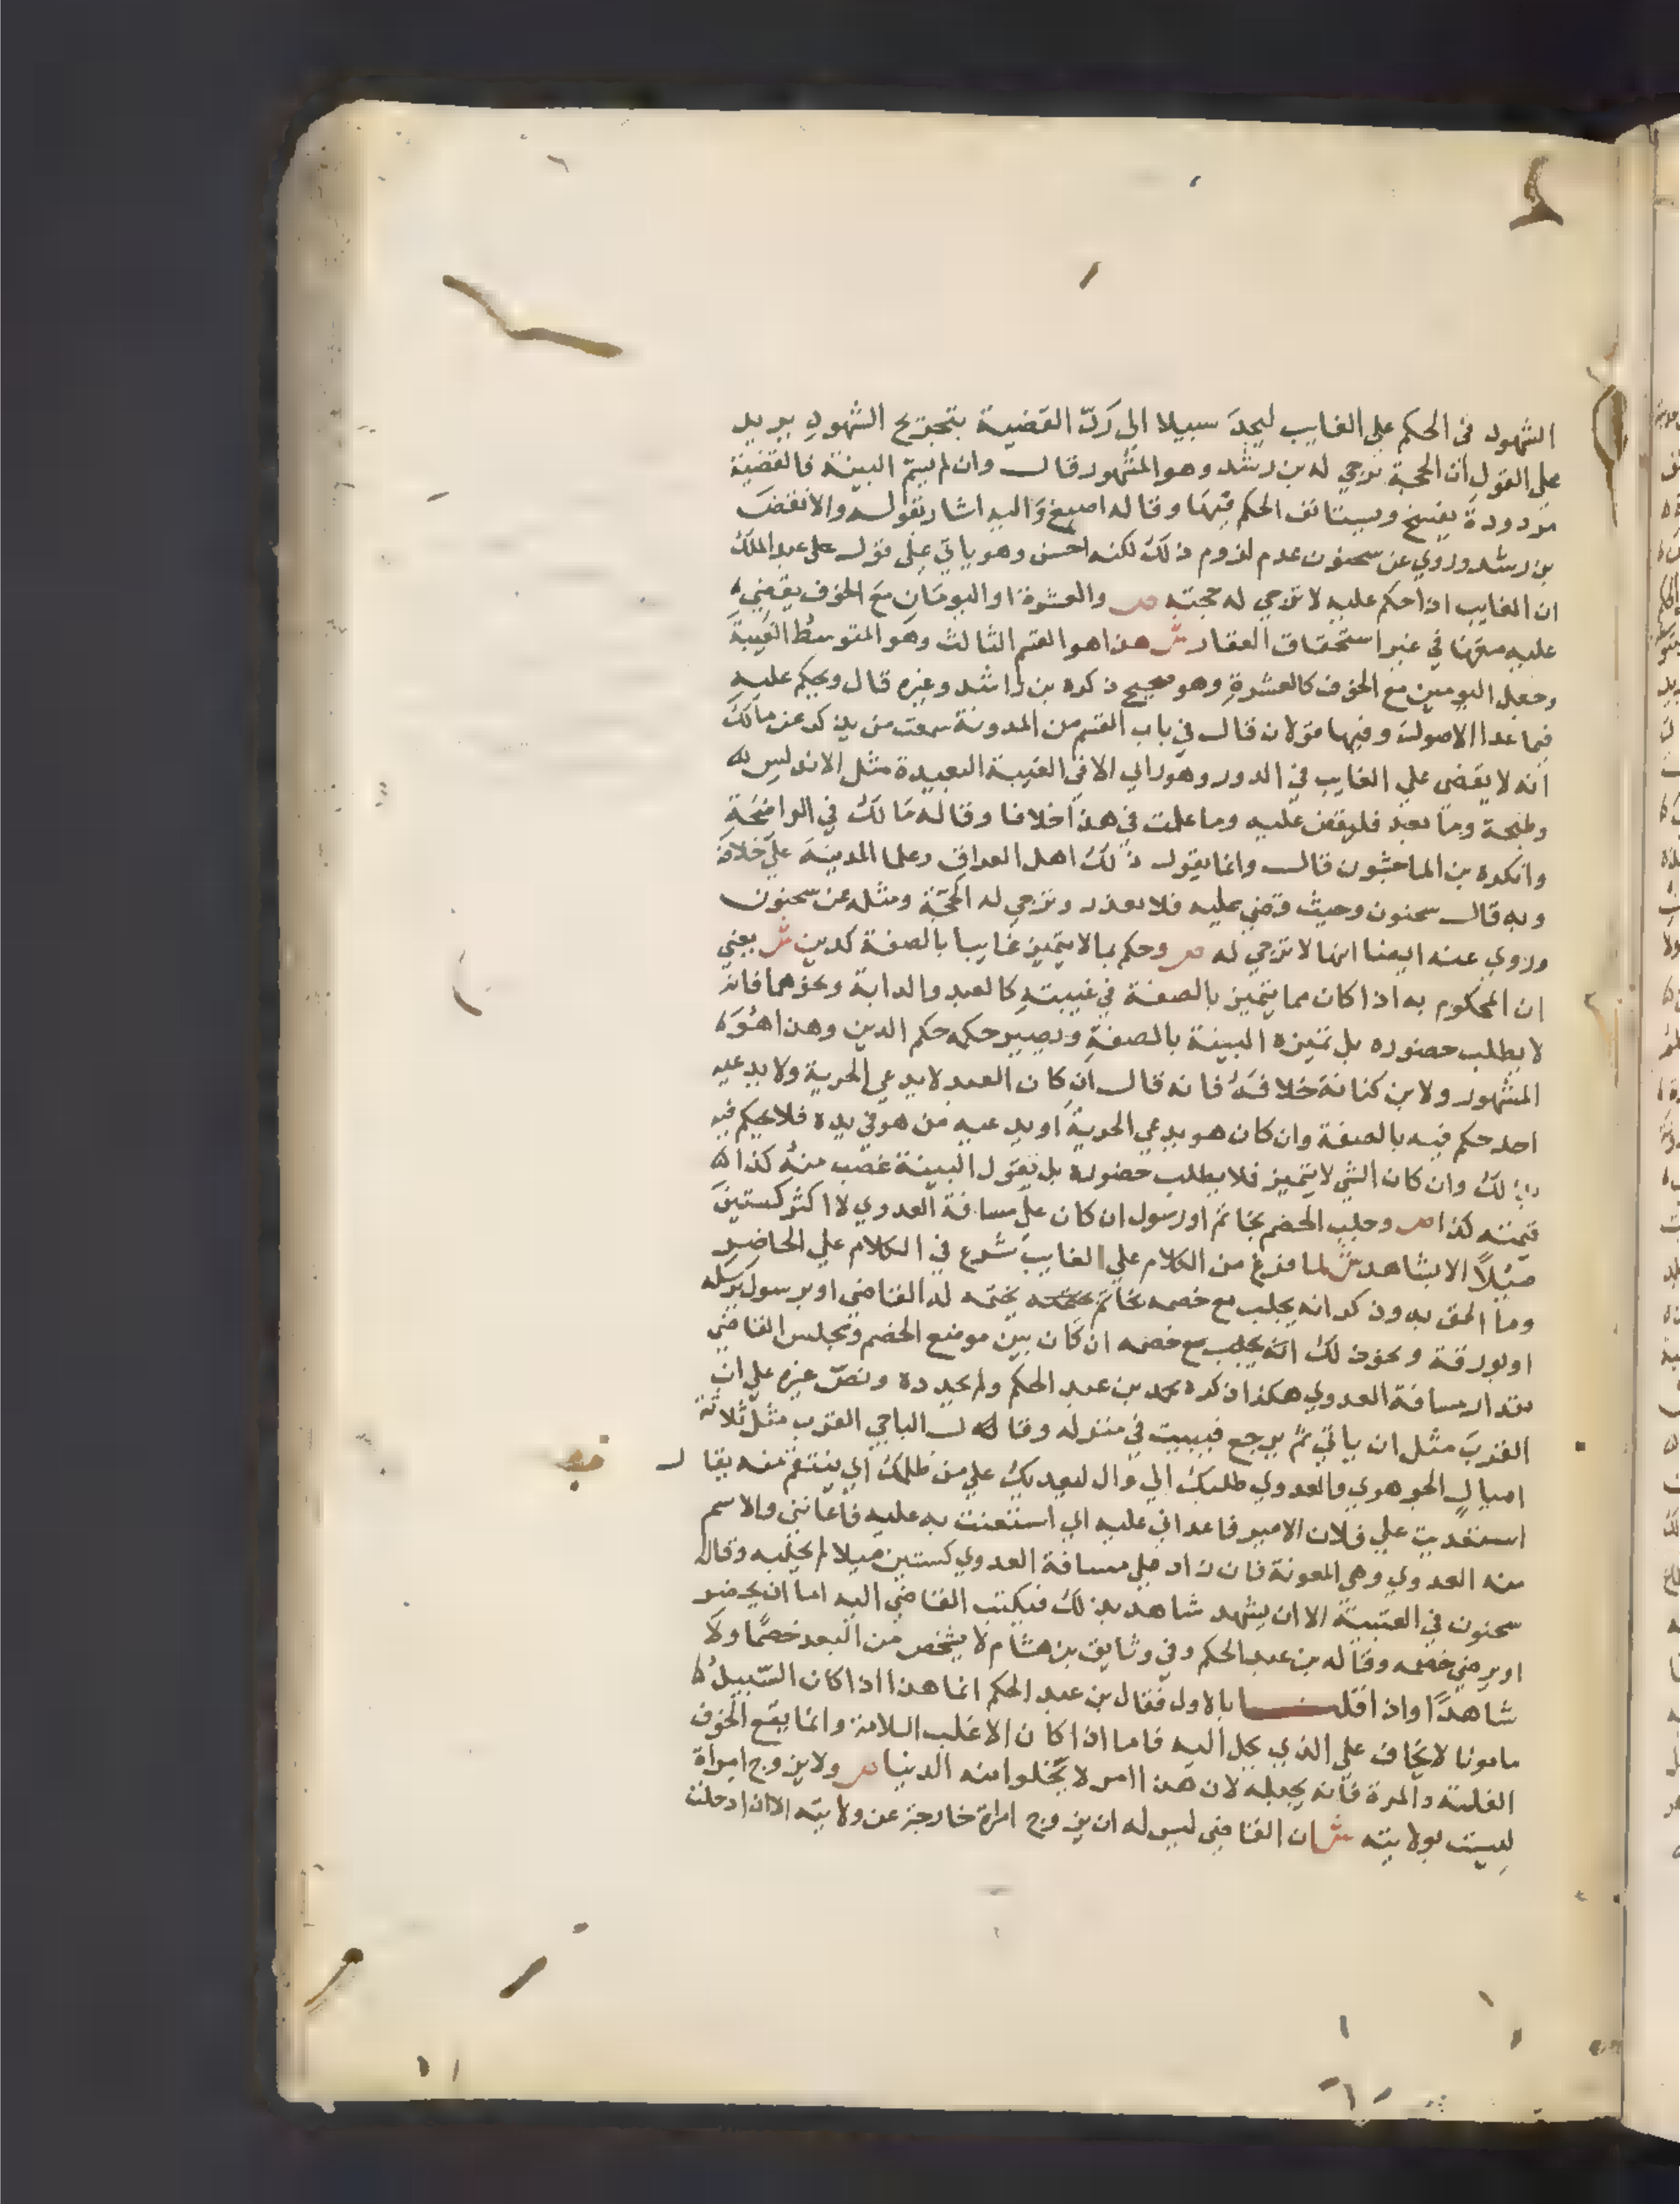 الشهود في الحكم علي الغايب ليجدَ سبيلا الي رَدّ القضية بتجريح الشهودِ يريد
علي القول ان الحجة ترجي له بن رشد وهو المشهور قال وان لم يسمّ البينة فالقضيّة
مردودة يفسخ ويستانف الحكم فيها وقاله اصبغ وَاليه اشار بقوله والا نقضَ
بن رشد وروي عن سحنون عدم لزوم ذلك لكنه احسن وهو ياتي علي قول عبد الملك
ان الغايب اذا حكم عليه لا ترجي له حجته ص والعشرة او اليومَان مَع الخوف يقضي
عليه معها في غير استحقاق العقار ش هذا هو القسم الثالث وهو المتوسط الغيبة
وجعل اليومين مع الخوف كالعشرةِ وهو صحيح ذكره بن راشد وغيره قال ويحكم عليه
فيما عدا الاصول وفيها قولان قال في باب القسم من المدونة سمعت من يذكر عن مالك
انه لا يقضى علي الغايب في الدور وهو راي الا في الغيبة البعيدة مثل الاندلس
وطنجة وما بعد فليقض عليه وما علمت في هذا خلافا وقاله مَالك في الواضحَة
وانكره بن الماجشون قال وانما يقول ذلك اهل العراق وعلما المدينة علي خلافه
وبه قال سحنون وحيث قضي عليه فلا بعذر وترجي له الحجّة ومثله عن سحنون
وروي عنه ايضا انها لا ترجي له ص وحكم بما لا يتميز غايبا بالصفة كدين ش يعني
ان المحكوم به اذا كان مما يتميز بالصفة في غيبته كالعبد والدابة ونحوهما فانه
لا يطلب حضوره بل تميزه البينة بالصفةِ ويصير حكمه حكم الدين وهذا هُوَ
المشهور ولابن كنانة خلافهُ فانه قال ان كان العبد لا يدعي الحرية ولا يدعيه
احد حكم فيه بالصفة وان كان هو يدعي الحرية او يدعيه من هو في يده فلا يحكم فيه
بذلك وان كان الشي لا يتميز فلا يطلب حضوره بل يقول البينة غصب منهُ كذا
قيمته كذا ص وجلب الخصم بخاتم او رسول ان كان علي مسافة العدوي لا اكثر كستينَ
ميلًا الا بشاهد ش لما فرغ من الكلام علي الغايب شرع في الكلام علي الحاضرِ
وما الحق به وذكر انه يجلب مع خصمه بخاتم يختمه له القاضي او برسول يرسله
او بورقة ونحو ذلك انه يجلب مع خصمه ان كان بين موضع الخصم ومجلس القاضي
مقدار مسافة العدوي هكذا ذكره محمد بن عبد الحكم ولم يحدده ونصّ غيره علي ان
القربَ مثل ان ياتي ثم يرجع فيبيت في منزله وقال الباجي القرب مثل ثلاثة
اميالٍ الجوهري والعدوي طلبك الي وال ليعديك علي من ظلمك اي ينتقم منه يقال
استعديت علي فلان الامير فاعداني عليه اي استعنت به عليه فاعانني والاسم
منه العدوي وهي المعونة فان زاد علي مسافة العدوي كستين ميلا لم يجلبه وقال
سحنون في العتبيّة الا ان يشهد شاهد بذلك فيكتب القاضي اليه اما ان يحضر
او يرضي خصمه وقاله بن عبد الحكم وفي وثايق بن هشام لا يشخص من البعد خصمًا ولا
شاهدًا واذا قلنا بالاول فقال بن عبد الحكم انما هذا اذا كان السّبيلُ
مامونا لا يخاف علي الذي يجل اليه فاما اذا كان الاغلب السلامة وانما يقع الخوف
الفلتة والمرة فانه يجلبه لان هذا امر لا تخلوا منه الدنيا ص ولا يزوج امراة
ليست بولايته ش ان القاضي ليس له ان يزوج امراة خارجة عن ولايته الا ان دخلت